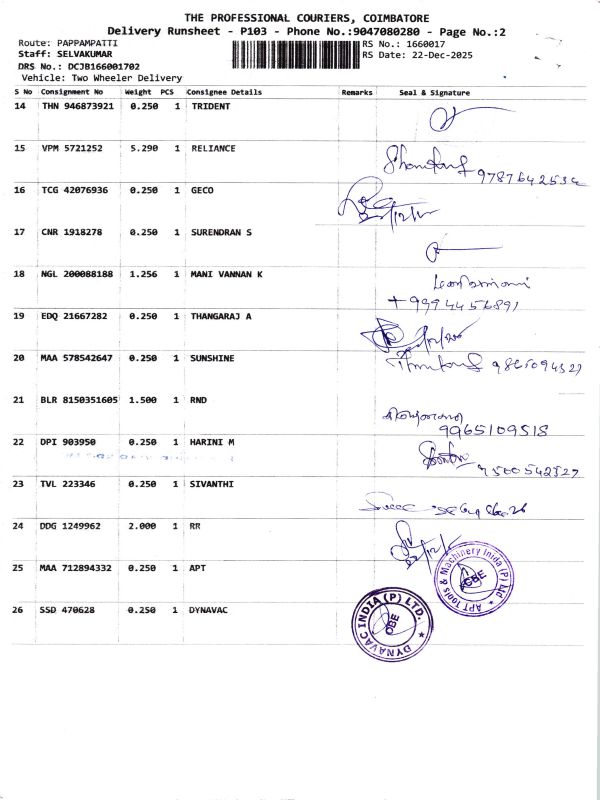 THE PROFESSIONAL COURIERS, COIMBATORE
Delivery Runsheet - P103 - Phone No.:9047080280 - Page No.:2
Route: PAPPAMPATTI RS No.: 1660017
Staff: SELVAKUMAR RS Date: 22-Dec-2025
DRS No.: DCJB166001702
Vehicle: Two Wheeler Delivery
S No Consignment No Weight PCS Consignee Details Remarks Seal & Signature
14 THN 946873921 0.250 1 TRIDENT
15 VPM 5721252 5.290 1 RELIANCE
9787642534
16 TCG 42076936 0.250 1 GECO
17 CNR 1918278 0.250 1 SURENDRAN S
18 NGL 200088188 1.256 1 MANI VANNAN K
+9994456891
19 EDQ 21667282 0.250 1 THANGARAJ A
20 MAA 578542647 0.250 1 SUNSHINE
21 BLR 8150351605 1.500 1 RND
9965109518
22 DPI 903950 0.250 1 HARINI M
7500542527
23 TVL 223346 0.250 1 SIVANTHI
24 DDG 1249962 2.000 1 RR
25 MAA 712894332 0.250 1 APT
APT Tools & Machinery Inida (P) Ltd
CBE
26 SSD 470628 0.250 1 DYNAVAC
DYNAVAC INDIA (P) LTD.
CBE